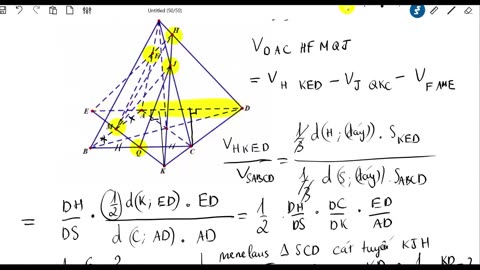 Untitled (50/50)
H
F
J
E
A
D
M
B
Q
C
K
V DAC HFMQJ
= V H KED - V J QKC - V FAME
V HKED / V SABCD = 1/3 d(H; (đáy)). S KED / 1/3 d(S; (đáy)) S ABCD
= DH/DS . (1/2) d(K; ED) . ED / d(C; AD) . AD = 1/2 . DH/DS . DC/DK . ED/AD
menelaus Δ SCD cát tuyến KJH